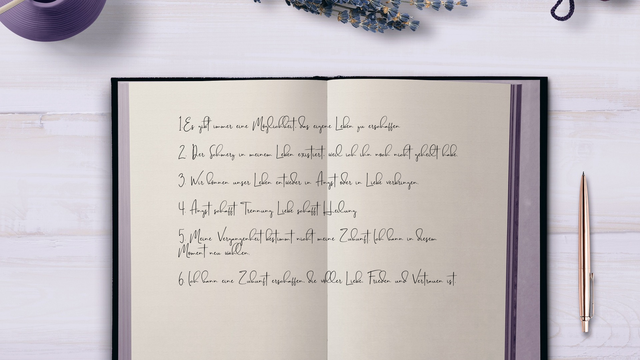 1. Es gibt immer eine Möglichkeit, das eigene Leben zu erschaffen
2. Der Schmerz in meinem Leben existiert, weil ich ihn noch nicht geheilt habe.
3. Wir können unser Leben entweder in Angst oder in Liebe verbringen.
4. Angst schafft Trennung Liebe schafft Heilung
5. Meine Vergangenheit bestimmt nicht meine Zukunft Ich kann in diesem
Moment neu wählen.
6. Ich kann eine Zukunft erschaffen, die voller Liebe, Frieden und Vertrauen ist.